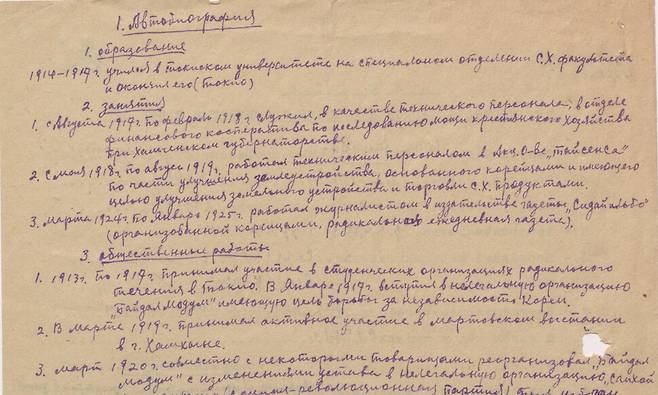 1. Автобиография
1. образование
1914-1917г. учился в токиском университете на специалном отделении С.Х. факультета
и окончил его (Токио)
2. занятия
1. с Августа 1917г. по февраль 1918г. служил, в качестве технического персонала, в отделе
финансового кооператива по исследованию мощи крестянского хозяйства
при Хамгенском губернаторстве.
2. С мая 1918г. по август 1919г. работал техническим персоналом в Акц. О-ве "Тайсенса"
по части улучшения землеустройства, основанного корейцами и имеющего
целью улучшения земельного устройства и торговли С.Х. продуктами.
3. Марта 1924г. по Январь 1925г. работал журналистом в издательстве газеты "Сидайильбо"
(организованной корейцами, радикальная ежедневная газета).
3. общественные работы
1. 1913г. по 1917г. принимал участие в студенческих организациях радикального
течения в Токио. В Январе 1919г. вступил в нелегальную организацию
"Пайдал Модум" имеющую цель борьбы за независимость Кореи.
2. В марте 1919г. принимал активное участие в мартовском выстании
в г. Хамхынье.
3. март 1920г. совместно с некоторыми товарищами реорганизовал "Пайдал
Модум" с изменениями устава в нелегальную организацию "Сахой
революционная партия)